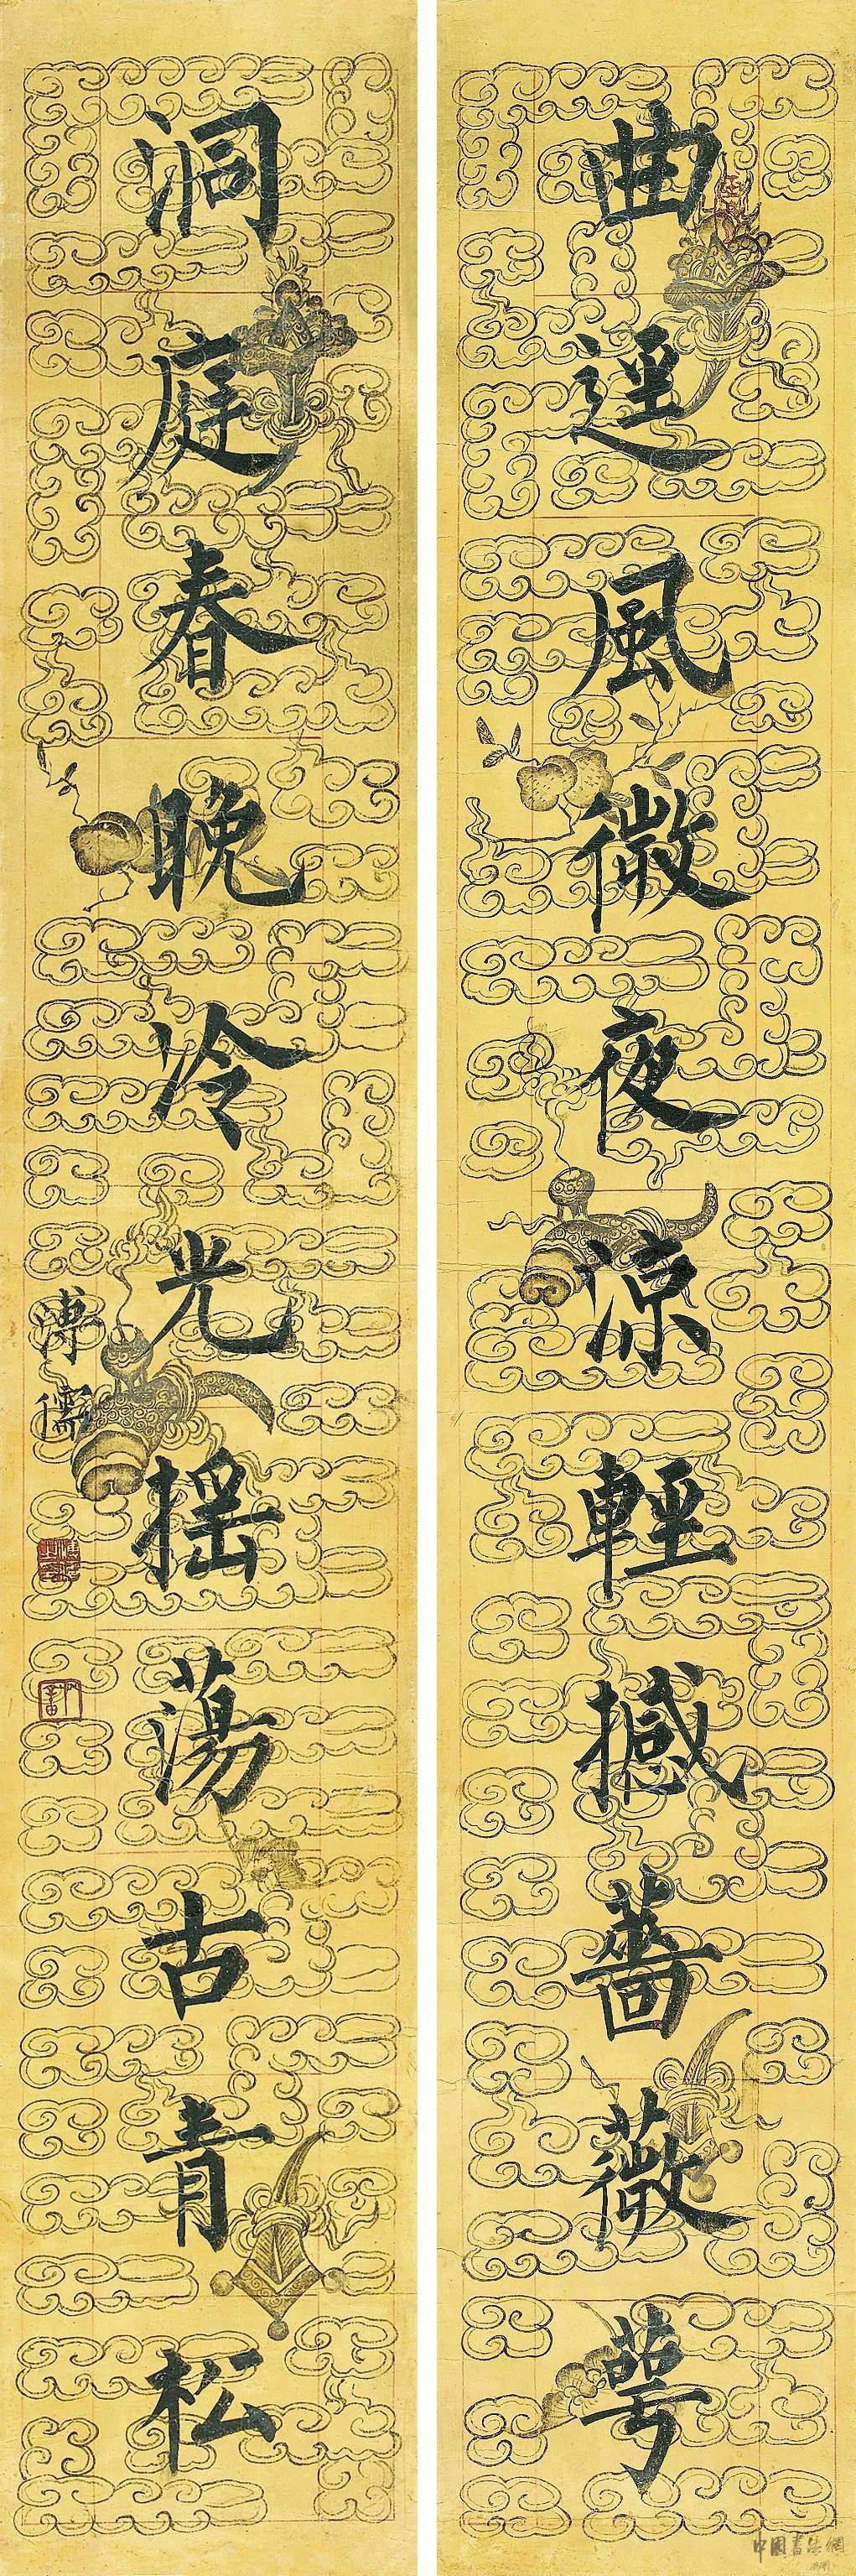 曲逕風微夜涼輕撼薔薇萼
洞庭春晚冷光搖蕩古青松
溥儒
中國書法網